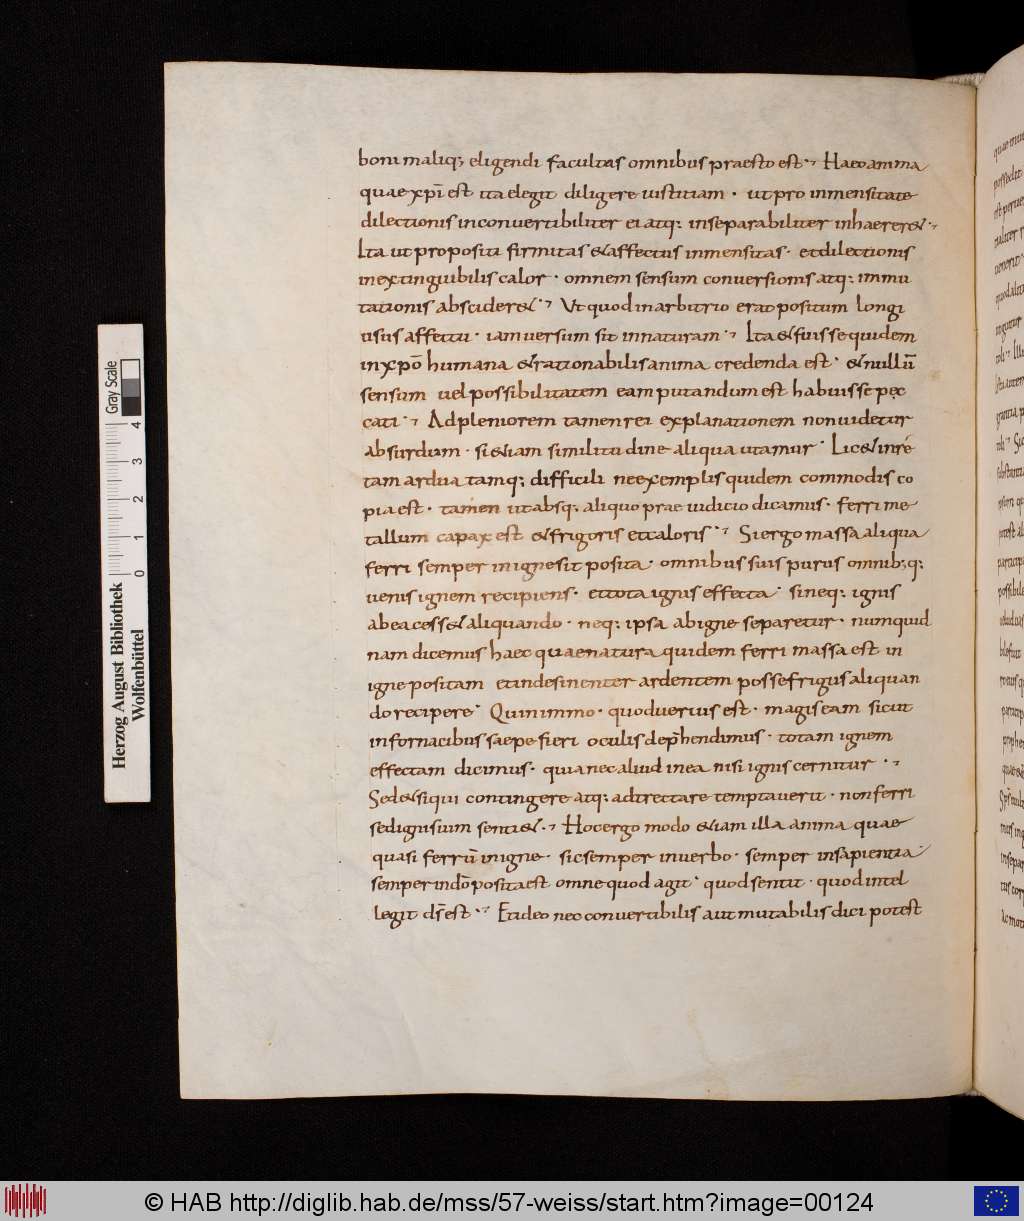 boni maliq; eligendi facultas omnibus praesto est· Haec anima
quae xp̄i est ita elegit diligere iustitiam · ut pro inmensitate
dilectionis inconvertibiliter ei atq: inseparabiliter inhaerer&·
Ita ut propositi firmitas & affectus inmensitas· et dilectionis
inextinguibilis calor · omnem sensum conversionis atq: inmu
tationis abscider&· Ut quod in arbitrio erat positum longi
usus affectu · iam versum sit in naturam· Ita & fuisse quidem
in xp̄o humana & rationabilis anima credenda est· & nullū
sensum vel possibilitatem eam putandum est habuisse pec
cati· Ad pleniorem tamen rei explanationem non videtur
absurdum · si & iam similitudine aliqua utamur· Lic& in re
tam ardua tamq; difficili ne exemplis quidem commodis co
pia est · tamen ut absq; aliquo prae iudicio dicamus · ferri me
tallum capax est & frigoris et caloris· Si ergo massa aliqua
ferri semper in igne sit posita· omnibus suis purus omnib;q:
uenis ignem recipiens· et tota ignis effecta· si neq: ignis
ab ea cess& aliquando · neq: ipsa ab igne separetur· numquid
nam dicemus haec quae natura quidem ferri massa est in
igne positam et indesinenter ardentem posse frigus aliquan
do recipere· Quin immo · quod uerius est · magis eam sicut
in fornacibus saepe fieri oculis dep̄hendimus · totam ignem
effectam dicimus· quia nec aliud in ea nisi ignis cernitur·
Sed & si qui contingere atq: adtrectare temptaverit · non ferri
sed ignis uim senti&· Hoc ergo modo & iam illa anima quae
quasi ferrū in igne· sic semper in verbo· semper in sapientia·
semper in dō posita est omne quod agit· quod sentit · quod intel
legit d̄s est· Et ideo nec convertibilis aut mutabilis dici potest
Herzog August Bibliothek
Wolfenbüttel
0 1 2 3 4
Gray Scale
© HAB http://diglib.hab.de/mss/57-weiss/start.htm?image=00124